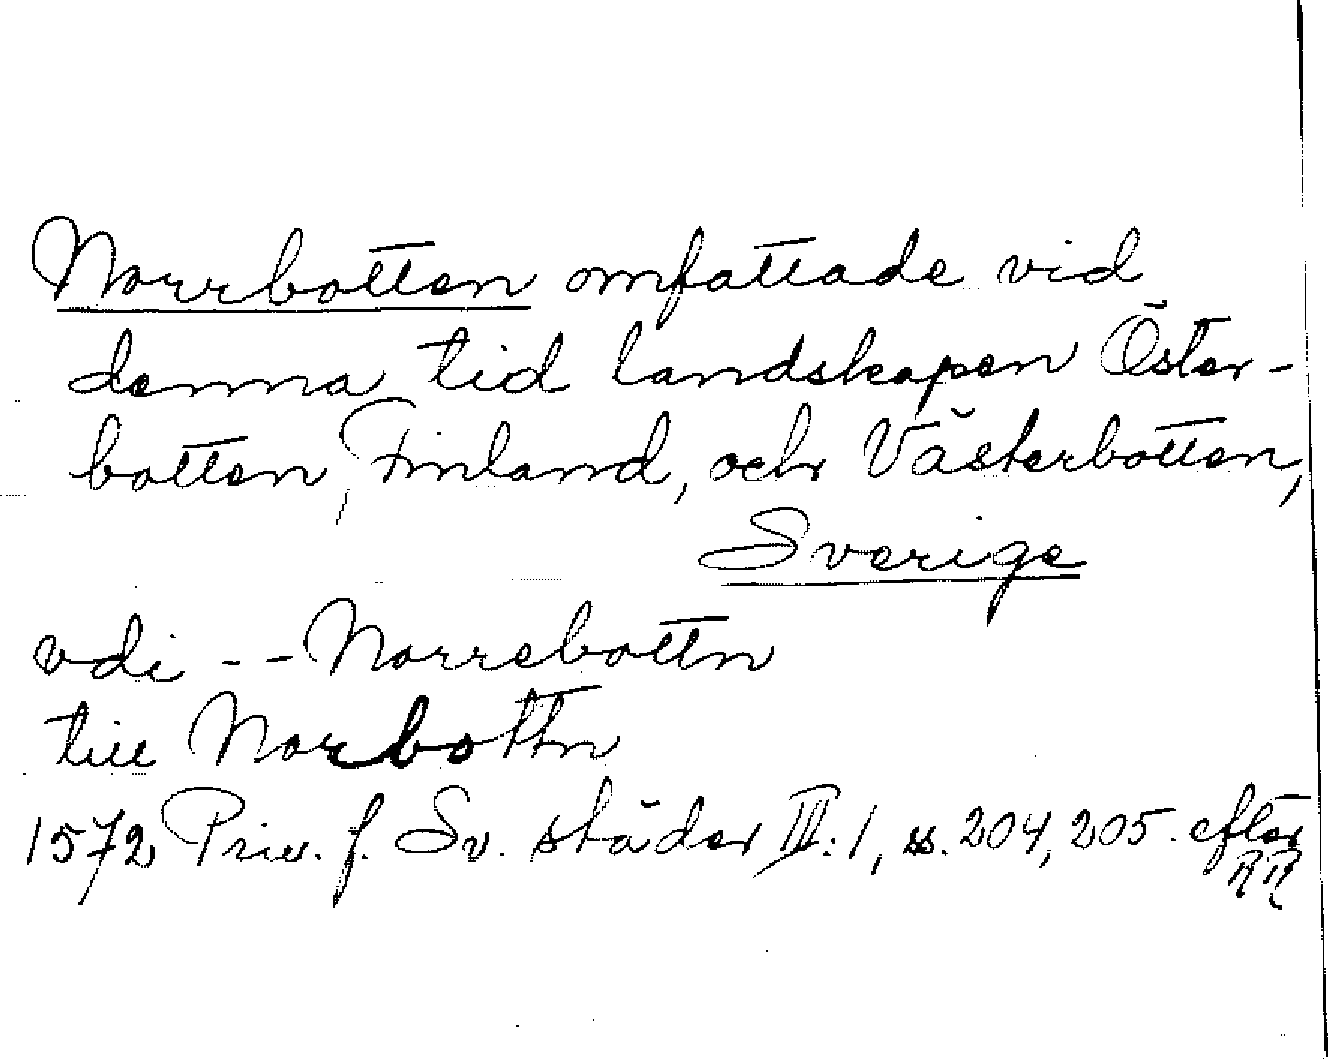 Norrbotten omfattade vid
denna tid landskapen Öster-
botten, Finland, och Västerbotten,
Sverige
vdi -- Norrebottn
till Norbottn
1572 Priv. f. Sv. städer III:1, s. 204, 205. efter
RR